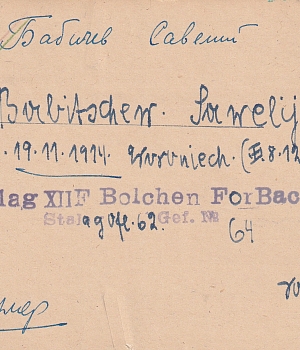 Бабичев Савелий
Babitschew. Sawelij
19.11.1914. Woroniech. (III.8.12
lag XII F Bolchen ForBac
Gef. №
62. 64